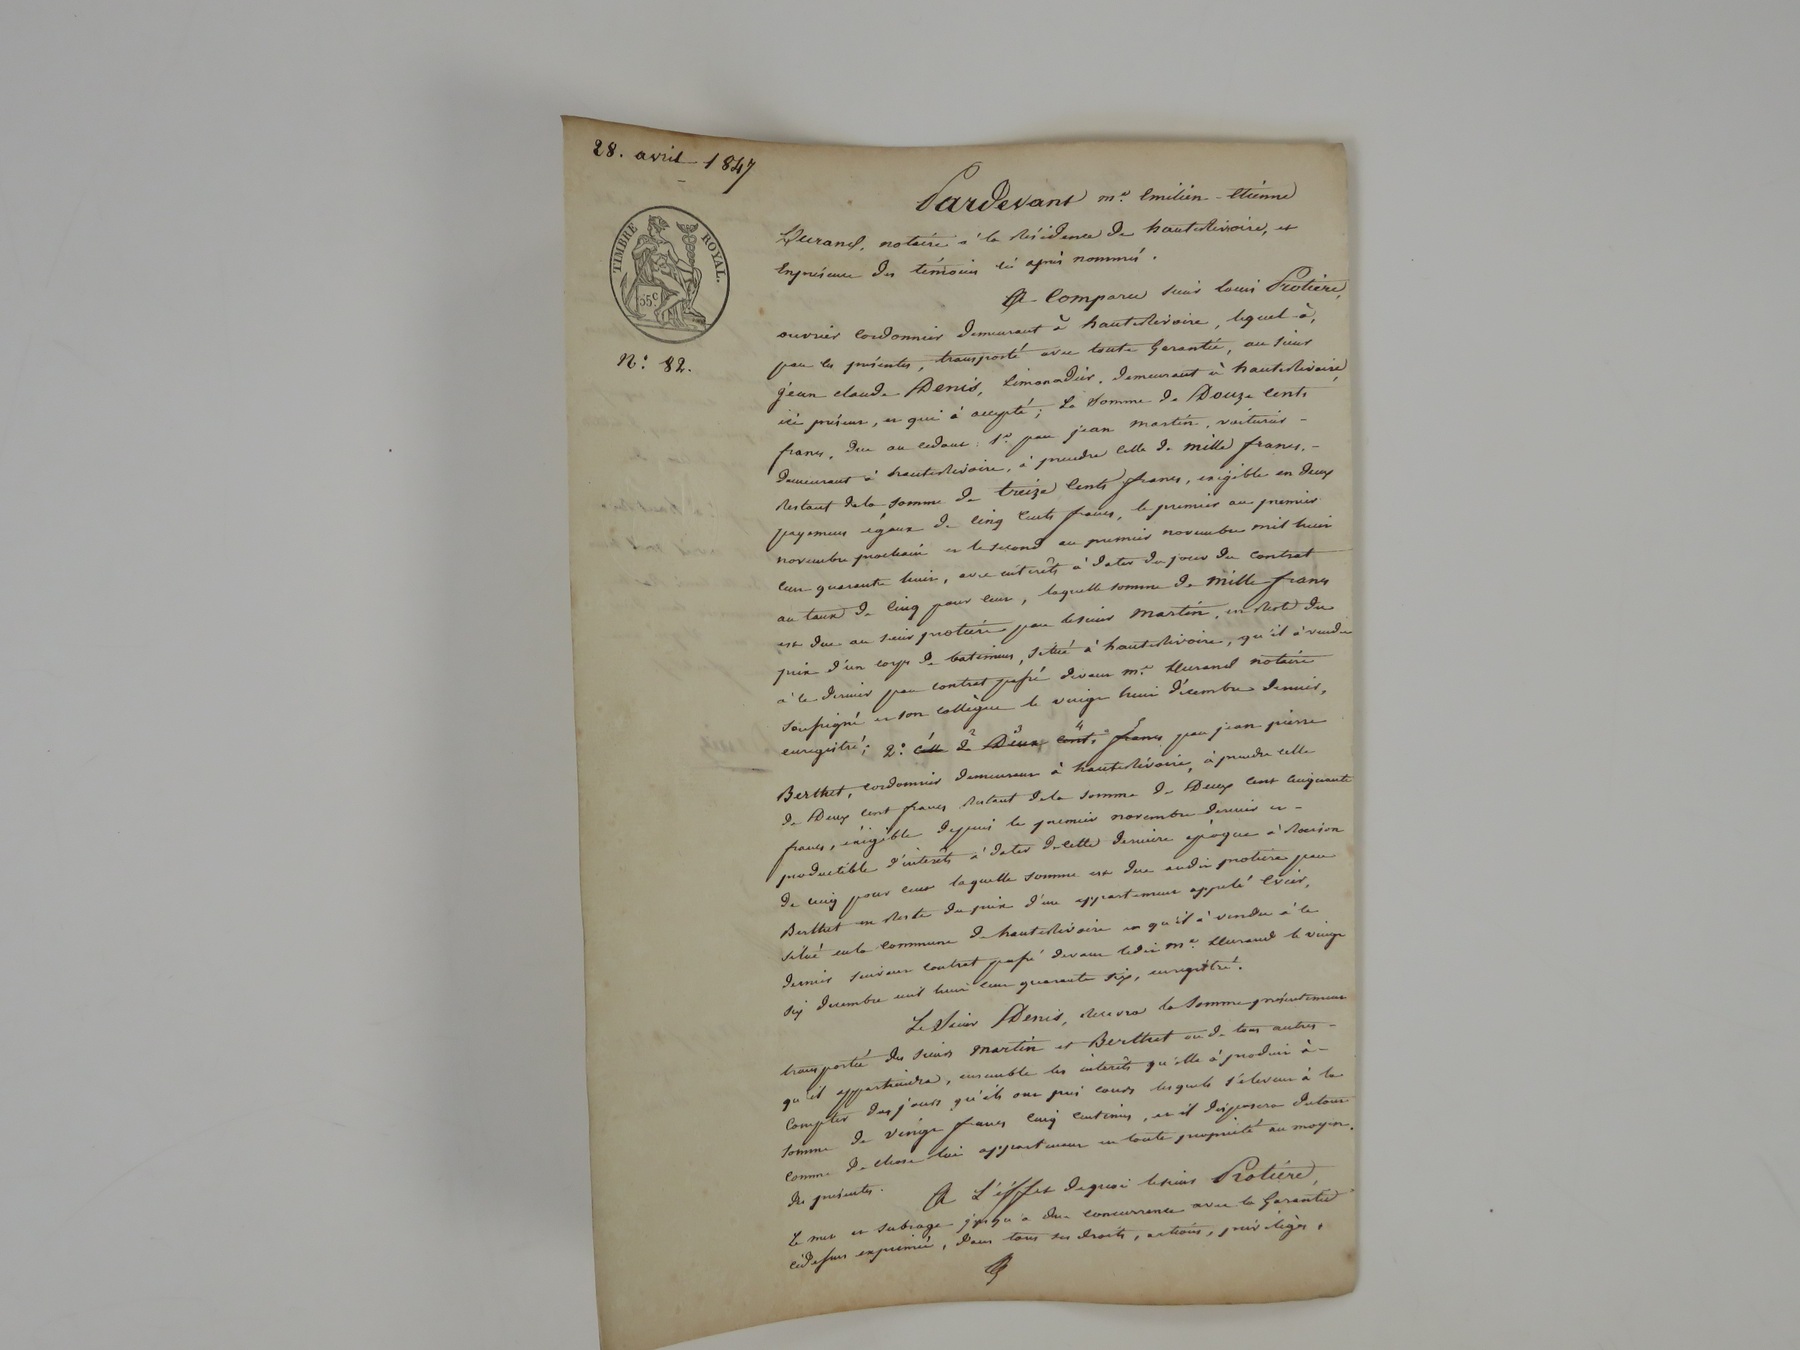 28. avril 1847
TIMBRE ROYAL.
35c
N.° 82.
Pardevant me. Emilien-Etienne
Durand, notaire à la Résidence de hauterivoire, et
En présence des témoins ci après nommés.
A Comparu sieur Louis Protière,
ouvrier cordonnier demeurant à hauterivoire, lequel à,
par les présentes, transporté avec toute Garantie, au sieur
jean claude Denis, Limonadier, demeurant à hauterivoire,
ici présent, et qui à accepté; La Somme de Douze Cents
francs, due au cedant: 1.° par jean martin, voiturier -
demeurant à hauterivoire, à prendre Celle de mille francs, -
Restant dela somme de treize Cents francs, exigible en deux
payemens égaux de Cinq Cents francs, le premier au premier
novembre prochain et le second au premier novembre mil huit
Cent quarante huit, avec intérêts à dater du jour du contrat
au taux de Cinq pour Cent, laquelle somme de mille francs
est due au sieur protière par lesieur martin, en Reste du
prix d'un corps de batimens, Situé à hauterivoire, qu'il à vendu
à ce dernier par contrat passé devant me. Durand notaire
Soussigné et son collègue le vingt huit décembre dernier,
enregistré; 2.° celle de Deux cents francs par jean pierre
2 3 4
Berthet, cordonnier demeurant à hauterivoire, à prendre celle
de Deux Cent francs Restant dela somme de Deux Cent Cinquante
francs, exigible depuis le premier novembre dernier et -
productible d'intérêts à dater de cette dernière époque à Raison
de cinq pour cent laquelle somme est due audit protière par
Berthet en Reste du prix d'un appartement appelé
Situé en la commune de hauterivoire et qu'il à vendu à ce
dernier suivant contrat passé devant ledit me. Durand le vingt
six décembre mil huit cent quarante six, enregistré.
Le Sieur Denis, Recevra la Somme présentement
transportée des sieurs martin et Berthet ou de tous autres -
qu'il appartiendra, ensemble les intérêts qu'elle à produit à -
Compter des jours qu'ils ont pris cours lesquels s'élevent à la
Somme de vingt francs Cinq Centimes, et il disposera du tout
Comme de chose lui appartenant en toute propriété au moyen
des présentes.
A L'éffet dequoi lesieur Protière,
Le met et subroge jusqu'à due concurrence avec la Garantie
cidessus exprimée, dans tous ses droits, actions, privilèges,